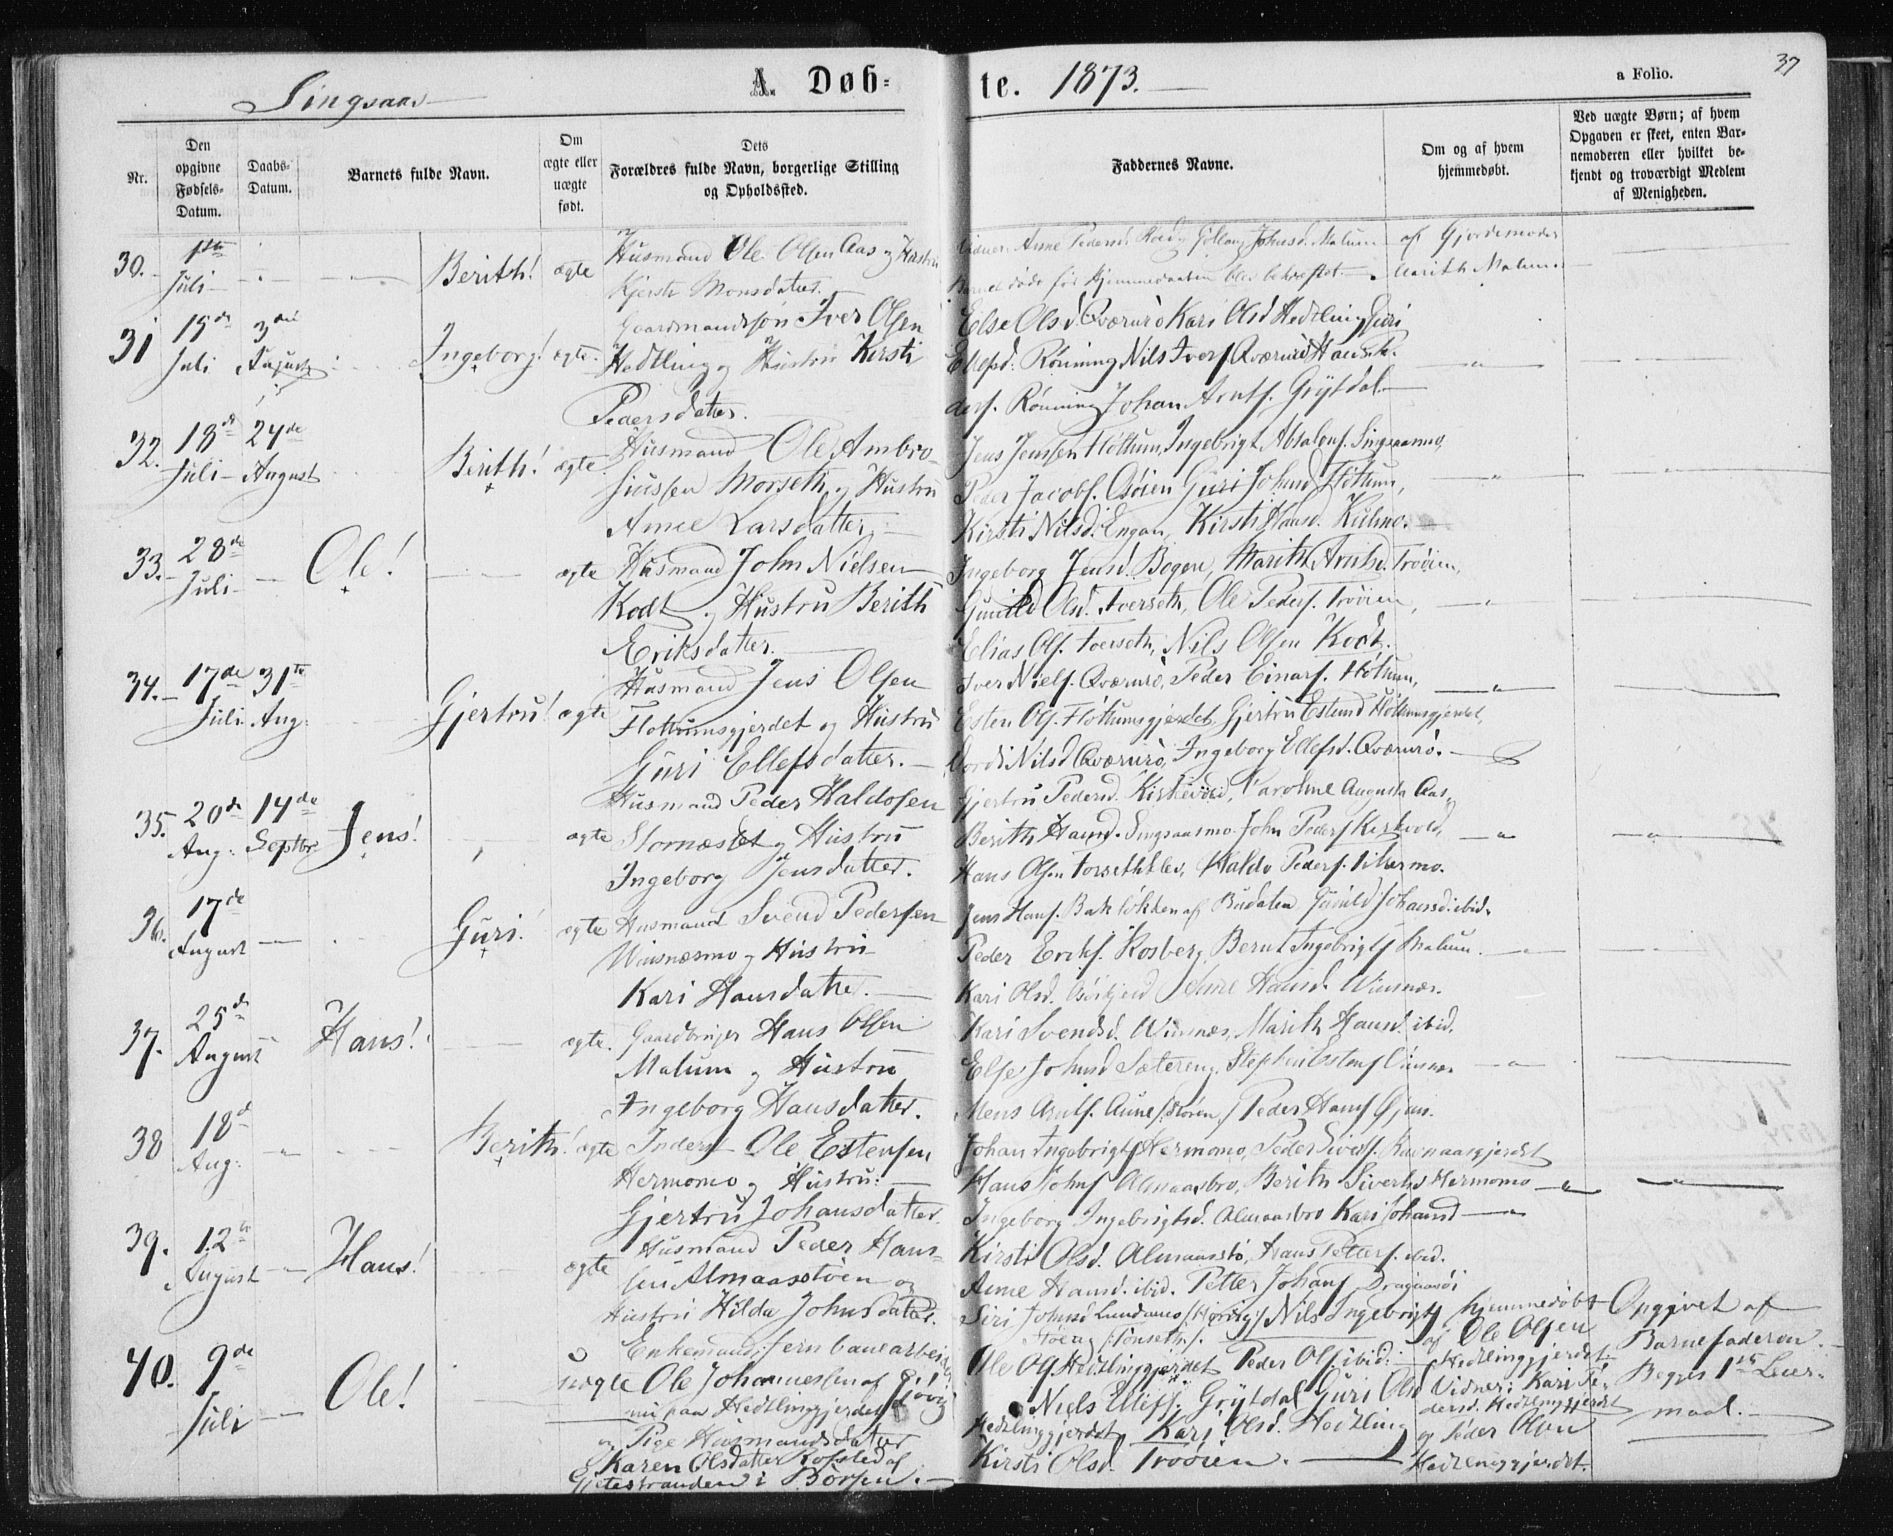 Singsaas
A. Døb-
te. 1873.
a Folio.
37
Nr.
Den opgivne Fødsels-Datum.
Daabs-Datum.
Barnets fulde Navn.
Om ægte eller uægte født.
Dets Forældres fulde Navn, borgerlige Stilling og Opholdssted.
Faddernes Navne.
Om og af hvem hjemmedøbt.
Ved uægte Børn; af hvem Opgaven er skeet, enten Barnemoderen eller hvilket bekjendt og troværdigt Medlem af Menigheden.
30. 1ste Juli Berith! ægte
Husmand Ole Olsen Aas og Hustru
Kjersti Monsdatter.
Anne Pedersd. Johnsd. Malum
døde før Hjemmedaaben blev bekræftet
af Gjordemoder
Marith Malum
31 15de Juli 3die August Ingeborg! ægte
Gaardmandssøn Iver Olsen
Hedtling og Hustru Kirsti
Pedersdatter.
Else Olsd. Qværnrø Kari Olsd Hedtling Guri
Ellefsd. Rønning Nils Ivers. Qværnrø
Rønning Johan Arnts. Grytdal
32. 18de Juli 24de August Berith! ægte
Husmand Ole Ambro-
siussen Morseth og Hustru
Anne Larsdatter.
Jens Jenssen Fløttum, Ingebrigt Absalons. Singsaasmo,
Peder Jacobs. Asøien Guri Johnsd Fløttum,
Kirsti Nilsd. Engan, Kirsti Hansd. Kulmo.
33. 28de Juli Ole! ægte
Husmand John Nielsen
Kodt og Hustru Berith
Eriksdatter.
Ingeborg Jensd. Bogen, Marith Arntsd. Trøien,
Gunild Olsd. Forseth, Ole Peders. Trøien,
Elias Ols. Forseth, Nils Olsen Kodt.
34. 17de Juli 31te Aug: Gjertru! ægte
Husmand Jens Olsen
Flottumsgjerdet og Hustru
Guri Ellefsdatter.
Iver Niels. Qværnrø, Peder Einars. Fløttum,
Esten Ols. Fløttumsgjerdet, Gjertru Estensd Fløttumsgjerdet,
Dordi Nilsd Qværnrø, Ingeborg Ellefsd. Qværnrø.
35. 20de Aug: 14de Septbr Jens! ægte
Husmand Peder Haldosen
Stornæslet og Hustru
Ingeborg Jensdatter.
Gjertru Pedersd. Kirkevold, Caroline Augusta Aas,
Berith Hansd. Singsaasmo. John Peders Kirkvold,
Hans Olsen Forseth, Haldo Peders.
36. 17de August Guri! ægte
Husmand Svend Pedersen
Winsnæsmo og Hustru
Kari Hansdatter.
Jens Hans. Bakløkken af Budalen Gunild Johansd. ibid.
Peder Eriks. Rosberg, Bernt Ingebrigts Malum.
Kari Olsd. Anne Hansd. Winsnæs.
37. 25de August Hans! ægte.
Gaardbruger Hans Olsen
Malum og Hustru
Ingeborg Hansdatter.
Kari Svendsd. Winsnæs, Marith Hansd. ibid.
Else Johnsd Sætereng, Stephen Estens Winsnes
Mons Arnts. Aune (Støren) Peder Hans
38 18de Aug: Berith! ægte
Inderst Ole Estensen
Hermomo og Hustru:
Gjertru Johansdatter.
Johan Ingebrigts Hermomo, Peder Siverts. Ramnaasgjerdet
Hans Johns Almaasbro, Berith Sivertsd Hermomo
Ingeborg Ingebrigtsd. Almaasbro Kari Johansd
39. 12te August Hans! ægte
Husmand Peder Han-
sen Almaasstøen og
Hustru Hilda Johnsdatter.
Kirsti Olsd. Almaasstø, Hans Petters. ibid.
Anne Hansd. ibid. Petter Johans
Siri Johnsd Lundamo (Horg) Nils Ingebrigts
40. 9de Juli Ole! uægte
Enkemand, Jernbanearbeider
Ole Johannessen af
nu paa Hedtlinggjerdet
og Pige Husmandsdatter
Karen Olsdatter Rofsted af
Gjetestranden i Børsen.
Ole Ols Hedtlinggjerdet Peder Ols. ibid.
Niels Ellefs. Grytdal Guri Olsd
Hedtlinggjerdet, Kari Olsd. Hedtling
Kirsti Olsd. Trøien.
hjemmedøbt
af Ole Olsen
Hedtlinggjerdet
Vidner: Kari Pe-
dersd. Hedtlinggjerdet
og Peder Olsen
Hedtlinggjerdet.
Opgivet af
Barnefaderen.
Begges 1ste Leier-
maal.